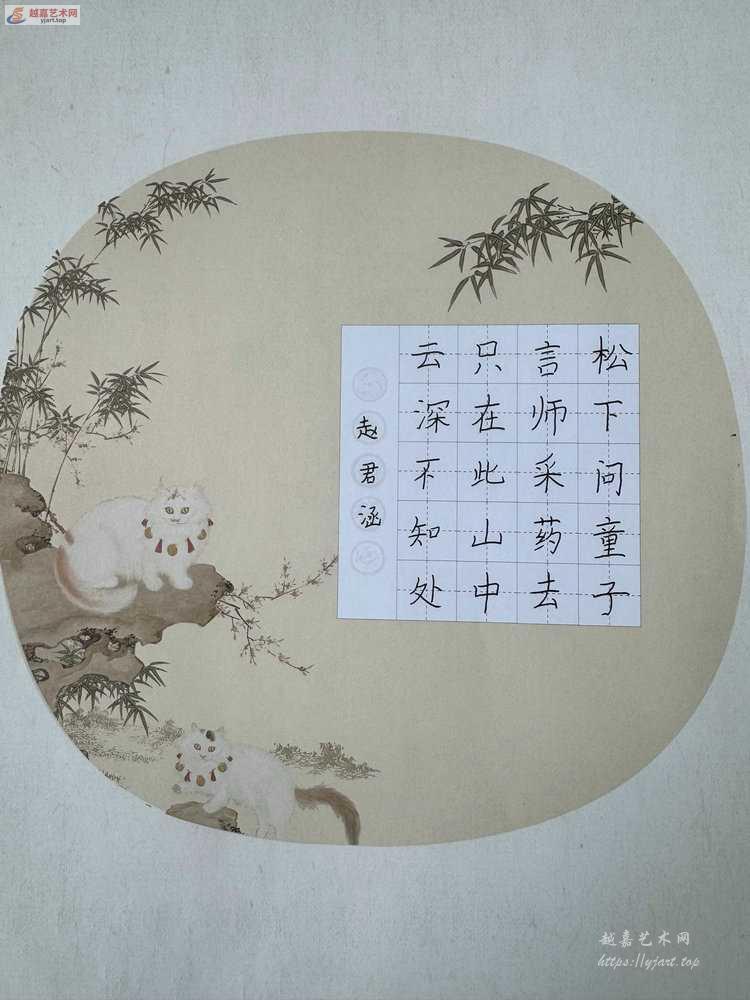 越嘉艺术网
yjart.top
松下问童子
言师采药去
只在此山中
云深不知处
赵君涵
越嘉艺术网
https://yjart.top